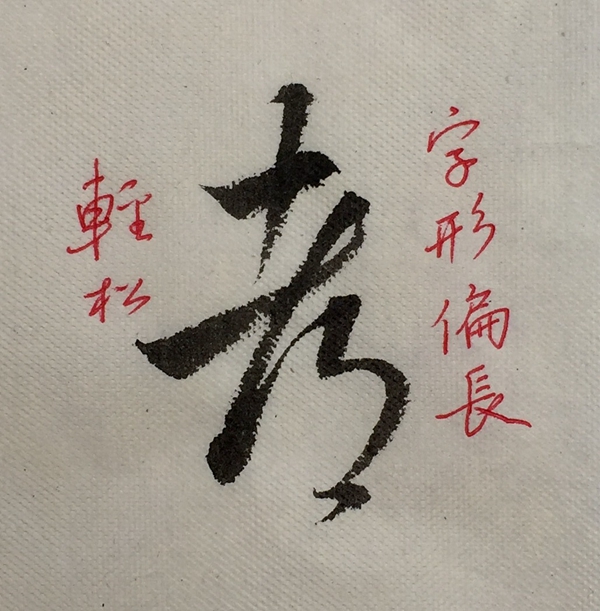 字形偏長
考
輕松